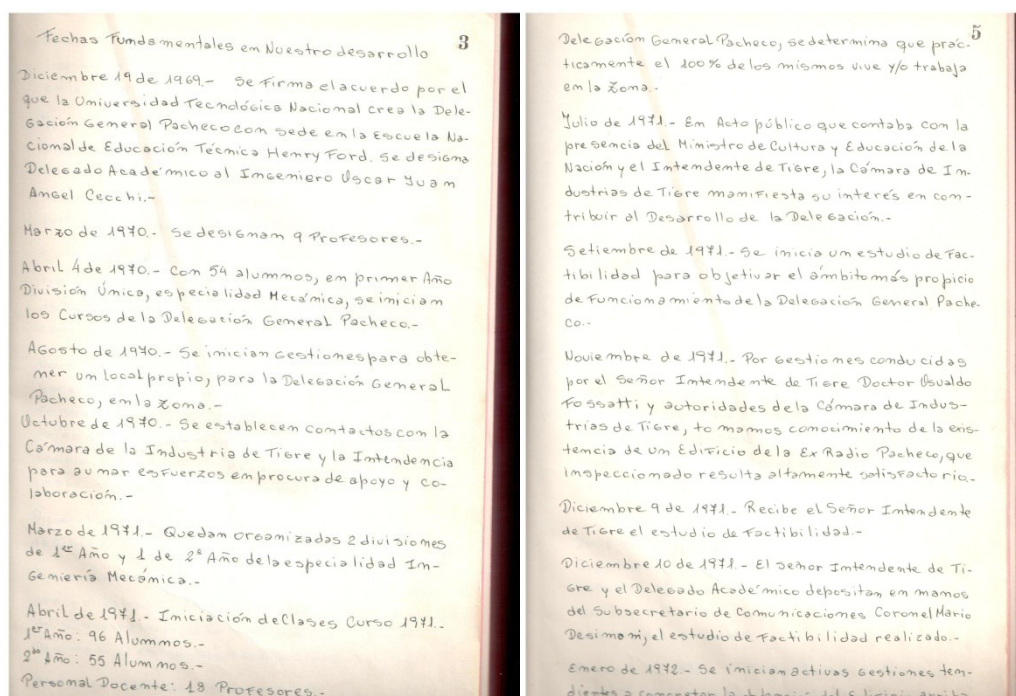 3
Fechas Fundamentales en Nuestro desarrollo
Diciembre 19 de 1969.- Se Firma el acuerdo por el
que la Universidad Tecnológica Nacional crea la Dele-
gación General Pacheco con sede en la Escuela Na-
cional de Educación Técnica Henry Ford. Se designa
Delegado Académico al Ingeniero Oscar Juan
Angel Cecchi.-
Marzo de 1970.- Se designan 9 Profesores.-
Abril 4 de 1970.- Con 54 alumnos, en primer Año
División Única, especialidad Mecánica, se inician
los Cursos de la Delegación General Pacheco.-
Agosto de 1970.- Se inician gestiones para obte-
ner un local propio, para la Delegación General
Pacheco, en la zona.-
Octubre de 1970.- Se establecen contactos con la
Cámara de la Industria de Tigre y la Intendencia
para aunar esfuerzos en procura de apoyo y co-
laboración.-
Marzo de 1971.- Quedan organizadas 2 divisiones
de 1er Año y 1 de 2° Año de la especialidad In-
geniería Mecánica.-
Abril de 1971.- Iniciación de Clases Curso 1971.-
1er Año: 96 Alumnos.-
2do Año: 55 Alumnos.-
Personal Docente: 18 Profesores.-
5
Delegación General Pacheco, se determina que prác-
ticamente el 100% de los mismos vive y/o trabaja
en la zona.-
Julio de 1971.- En Acto público que contaba con la
presencia del Ministro de Cultura y Educación de la
Nación y el Intendente de Tigre, la Cámara de In-
dustrias de Tigre manifiesta su interés en con-
tribuir al Desarrollo de la Delegación.-
Setiembre de 1971.- Se inicia un estudio de Fac-
tibilidad para objetivar el ámbito más propicio
de Funcionamiento de la Delegación General Pache-
co.-
Noviembre de 1971.- Por gestiones conducidas
por el Señor Intendente de Tigre Doctor Osvaldo
Fossatti y autoridades de la Cámara de Indus-
trias de Tigre, tomamos conocimiento de la exis-
tencia de un Edificio de la Ex Radio Pacheco, que
inspeccionado resulta altamente satisfactorio.-
Diciembre 9 de 1971.- Recibe el Señor Intendente
de Tigre el estudio de Factibilidad.-
Diciembre 10 de 1971.- El señor Intendente de Ti-
gre y el Delegado Académico depositan en manos
del Subsecretario de Comunicaciones Coronel Mario
Desimoni, el estudio de Factibilidad realizado.-
Enero de 1972.- Se inician activas gestiones ten-
dientes a concretar la